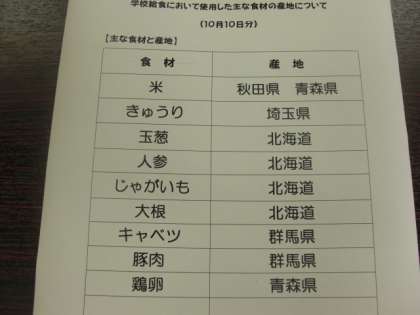 学校給食において使用した主な食材の産地について
(10月10日分)
【主な食材と産地】
食材 産地
米 秋田県 青森県
きゅうり 埼玉県
玉葱 北海道
人参 北海道
じゃがいも 北海道
大根 北海道
キャベツ 群馬県
豚肉 群馬県
鶏卵 青森県